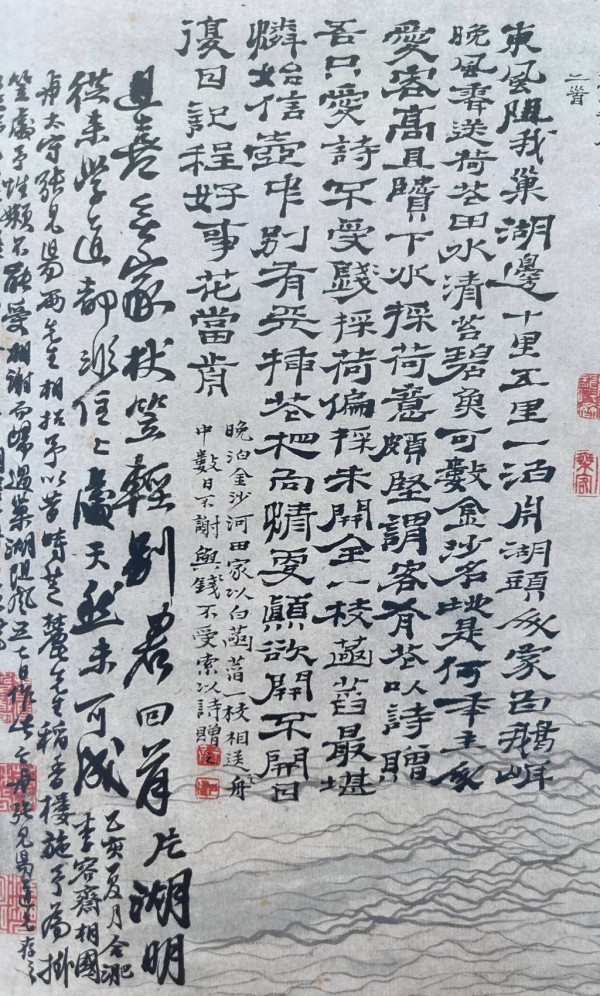 二首
東風阻我巢湖邊十里五里一泊舟湖頭人家白鵝岸
晚風齊送荷花田水清苔碧魚可數金沙名地是何年主人
愛客高且賢下水採荷意頗堅謂客有花以詩贈
吾只愛詩不愛錢採荷偏採未開全一枝菡萏最堪
憐始信壺中別有天插花把向情更顛欲開不開日
復日記程好事花當肯
晚泊金沙河田家以白菡萏一枝相送舟
中數日不謝與錢不受索以詩贈之
且喜無家杖笠輕別君回首片湖明
從來學道都非住住處天然未可成
乙亥夏月合淝
李容齋相國
與太守張見陽兩先生相招予以昔時芝麓先生稻香樓施予為掛
笠處予性懶不能受相謝而歸過巢湖阻風五七日作此張見陽存之